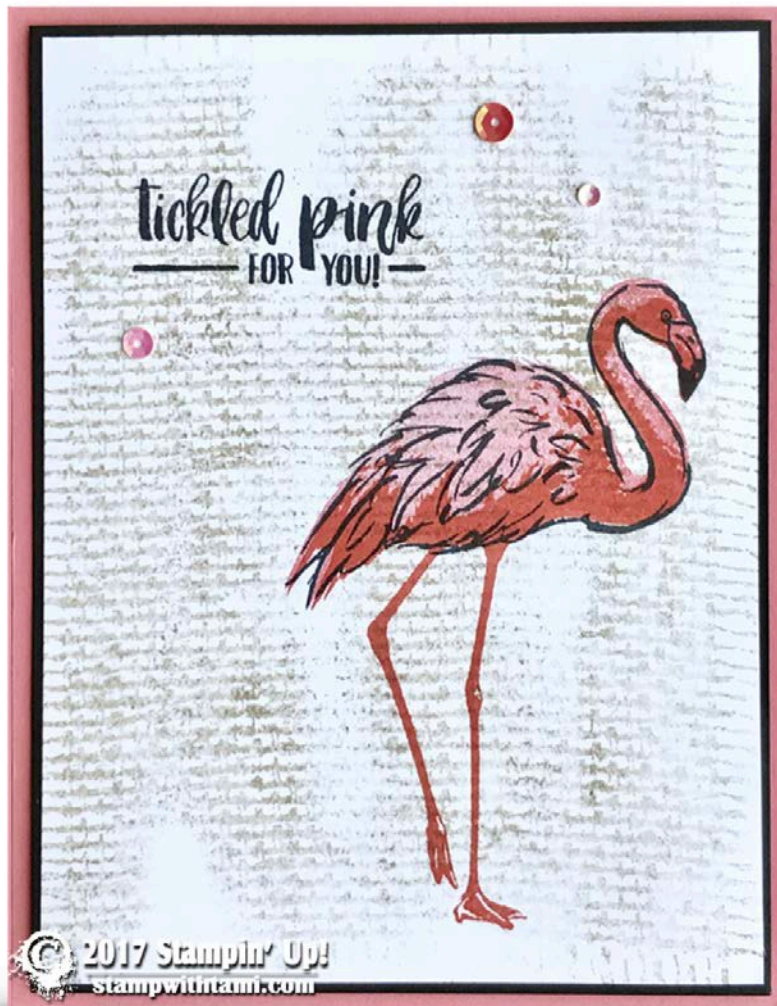 tickled pink
FOR YOU!
© 2017 Stampin' Up!
stampwithtami.com